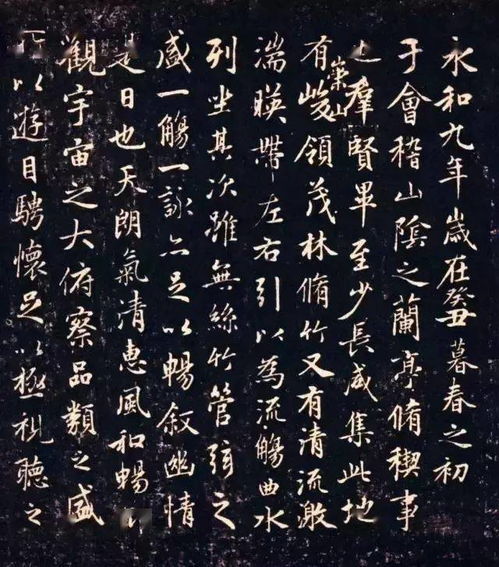 永和九年歲在癸丑暮春之初
于會稽山陰之蘭亭脩稧事
也羣賢畢至少長咸集此地
有崇山峻領茂林脩竹又有清流激
湍暎帶左右引以為流觴曲水
列坐其次雖無絲竹管弦之
盛一觴一詠亦足以暢敘幽情
是日也天朗氣清惠風和暢
觀宇宙之大俯察品類之盛
所以遊目騁懷足以極視聽之